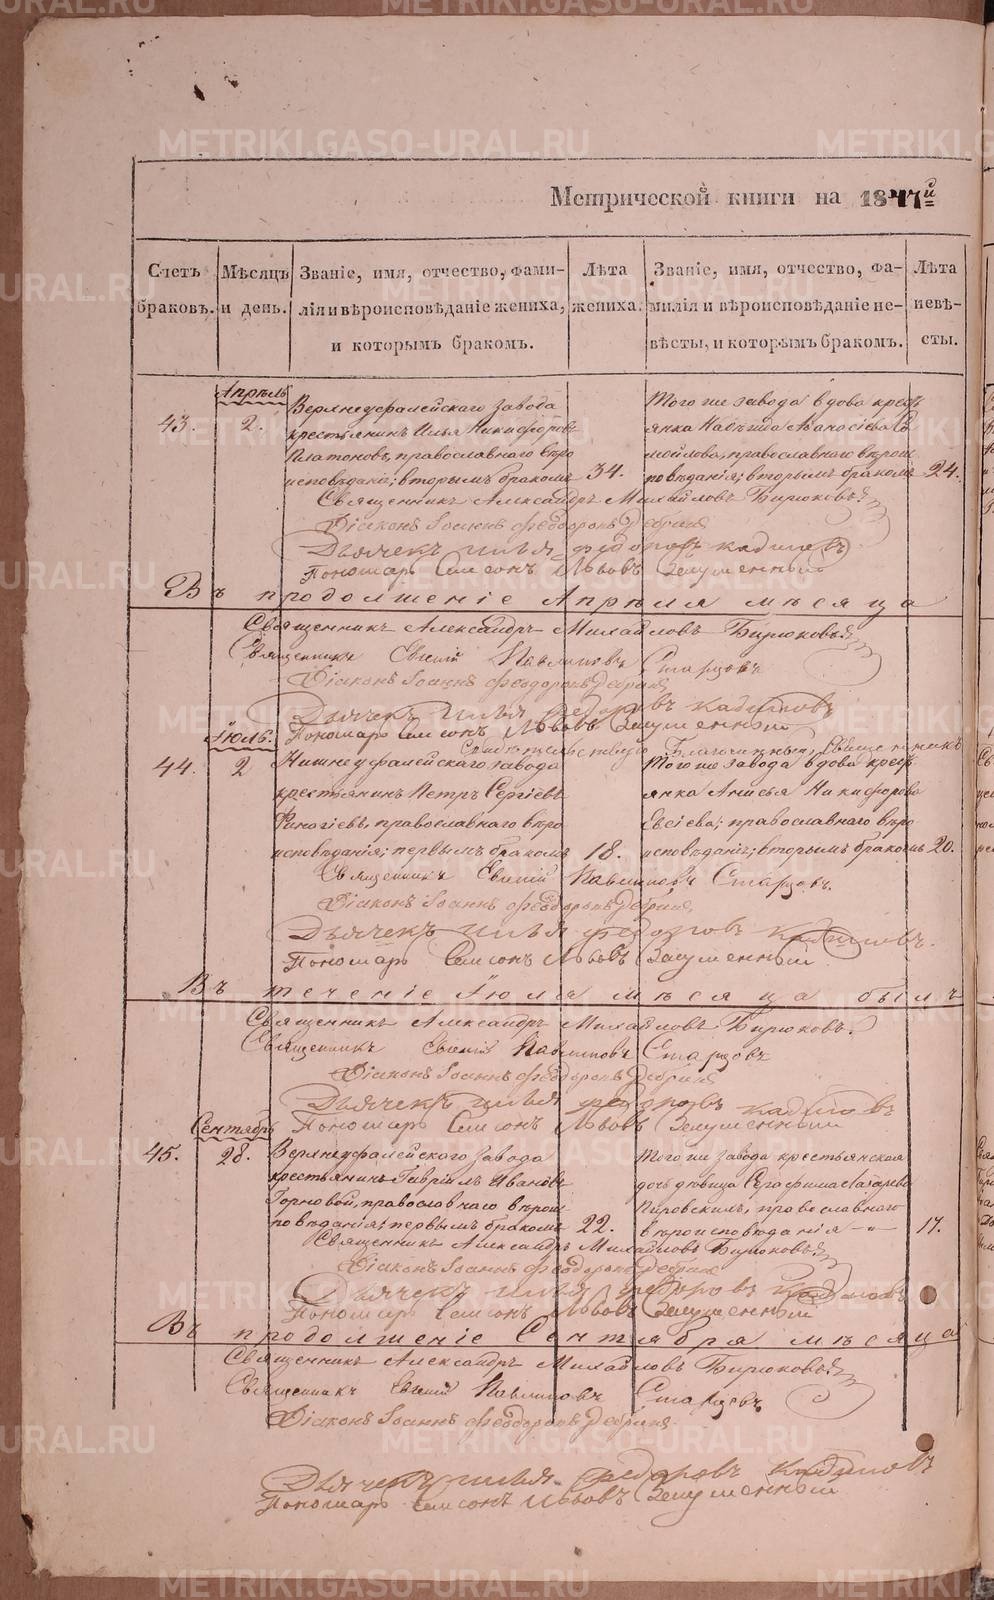 Метрической книги на 1847й
Счетъ браковъ.
Мѣсяцъ и день.
Званіе, имя, отчество, фами-
лія и вѣроисповѣданіе жениха,
и которымъ бракомъ.
Лѣта
жениха.
Званіе, имя, отчество, фа-
милія и вѣроисповѣданіе не-
вѣсты, и которымъ бракомъ.
Лѣта
невѣ-
сты.
Апрѣль
43.
2.
Верхнеуфалейскаго завода
крестьянинъ Илья Никифоровъ
Платоновъ, православнаго вѣро
исповѣданія; вторымъ бракомъ
34.
Того же завода вдова крест
янка
православнаго вѣроис
повѣданія; вторымъ бракомъ
24.
Священникъ Александръ Михайловъ Бирюковъ
Діаконъ Іоаннъ Феодоровъ
Дьячекъ Илья Федоровъ
Пономарь Самсонъ Львовъ
Въ продолженіе Апрѣля мѣсяца
Священникъ Александръ Михайловъ Бирюковъ
Священникъ Евгеній Старцовъ
Діаконъ Іоаннъ Феодоровъ
Дьячекъ Илья Федоровъ
Пономарь Самсонъ Львовъ
Іюль.
Благочинный, Священникъ
44.
2
Нижнеуфалейскаго завода
крестьянинъ Петръ Сергіевъ
православнаго вѣро
исповѣданія; первымъ бракомъ
18.
Того же завода вдова крест
янка Анисья Никифорова
Евсіева; православнаго вѣро
исповѣданія; вторымъ бракомъ
20.
Священникъ Евгеній Старцовъ.
Діаконъ Іоаннъ Феодоровъ
Дьячекъ Илья Федоровъ
Пономарь Самсонъ Львовъ
Въ теченіе Іюля мѣсяца былъ
Священникъ Александръ Михайловъ Бирюковъ.
Священникъ Евгеній Старцовъ
Діаконъ Іоаннъ Феодоровъ
Дьячекъ Илья Федоровъ
Пономарь Самсонъ Львовъ
Сентябрь
45.
28.
Верхнеуфалейскаго завода
крестьянинъ Гавріилъ Ивановъ
Горновой, православнаго вѣроис
повѣданія; первымъ бракомъ
22.
Того же завода крестьянская
дочь дѣвица Серафима Лазарева
православнаго
вѣроисповѣданія
17.
Священникъ Александръ Михайловъ Бирюковъ
Діаконъ Іоаннъ Феодоровъ
Дьячекъ Илья Федоровъ
Пономарь Самсонъ Львовъ
Въ продолженіе Сентября мѣсяца
Священникъ Александръ Михайловъ Бирюковъ
Священникъ Евгеній Старцовъ
Діаконъ Іоаннъ Феодоровъ
Дьячекъ Илья Федоровъ
Пономарь Самсонъ Львовъ
METRIKI.GASO-URAL.RU